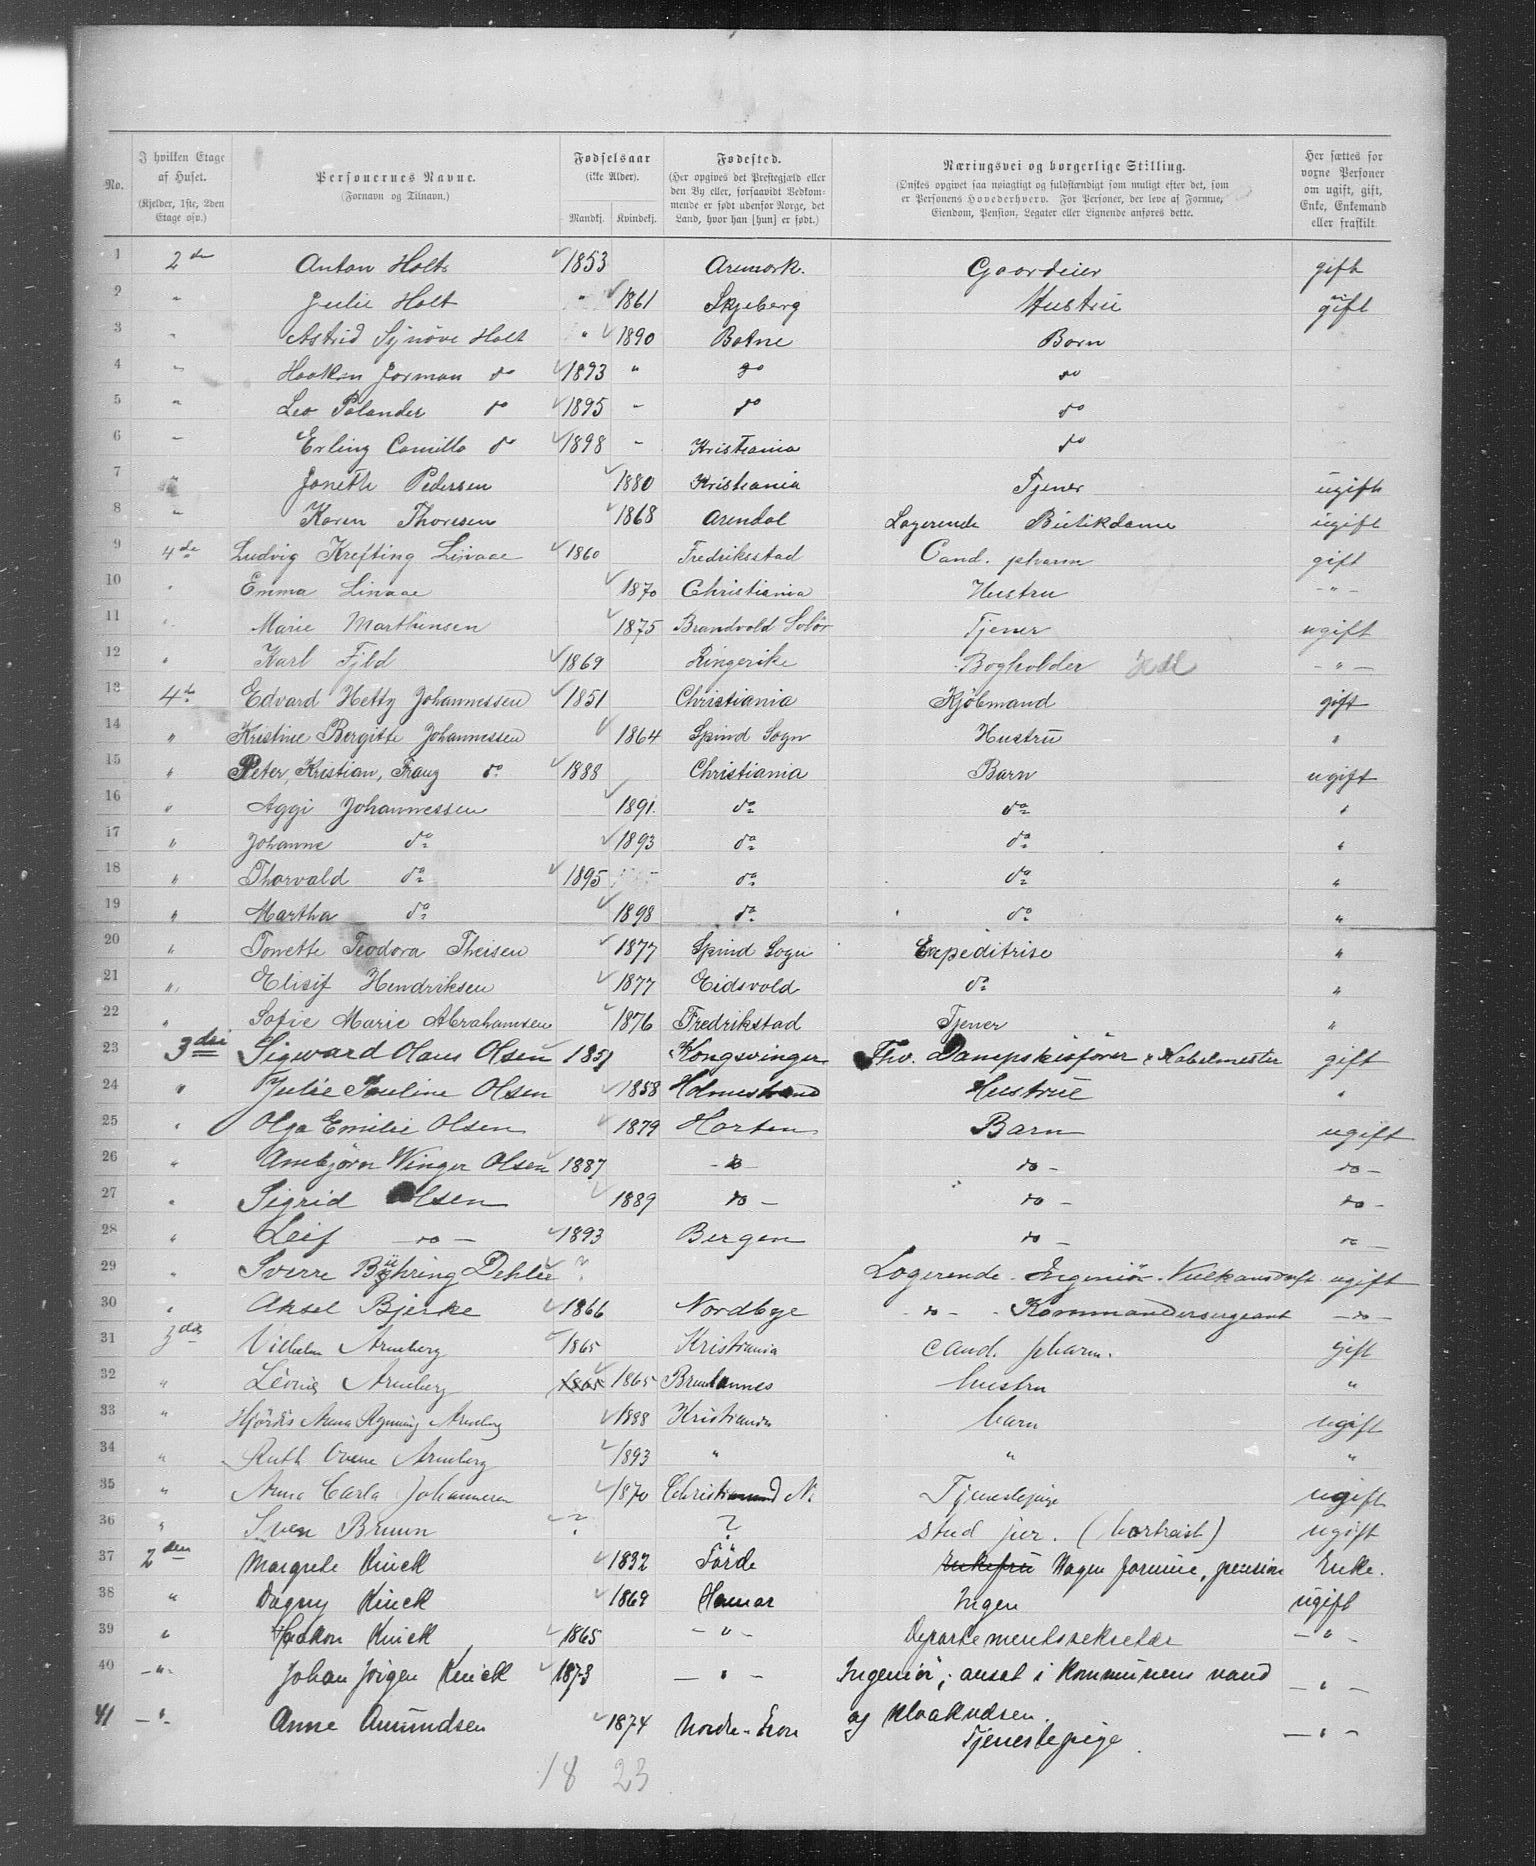 No. | I hvilken Etage af Huset. (Kjelder, 1ste, 2den Etage osv.) | Personernes Navne. (Fornavn og Tilnavn.) | Fødselsaar (ikke Alder). Mandkj. | Kvindekj. | Fødested. (Her opgives det Prestegjæld eller den By eller, forsaavidt Vedkommende er født udenfor Norge, det Land, hvor han [hun] er født.) | Næringsvei og borgerlige Stilling. (Ønskes opgivet saa nøiagtigt og fuldstændigt som muligt efter det, som er Personens Hovederhverv. For Personer, der leve af Formue, Eiendom, Pension, Legater eller Lignende anføres dette.) | Her sættes for voxne Personer om ugift, gift, Enke, Enkemand eller fraskilt.
1 2den Anton Holt 1853 Aremork. Gaardeier gift
2 " Julie Holt " 1861 Skjeberg Hustru gift
3 " Astrid Synöve Holt " 1890 Botne Born
4 " Haakon Jorman do 1893 " do do
5 " Leo Polander do 1895 " do do
6 " Erling Camillo do 1898 " Kristiania do
7 " Janeth Pedersen 1880 Kristiania Tjener ugift
8 " Karen Thoresen 1868 Arendal Logerende Butikdame ugift
9 4de Ludvig Krefting Linaae 1860 Fredriksstad Cand. pharm gift
10 " Emma Linaae 1870 Christiania Hustru - " -
11 " Marie Marthinsen 1875 Brandvold Solör Tjener ugift
12 " Karl Fjld 1869 Ringerike Bogholder - " -
13 4de Edvard Hetty Johannessen 1851 Christiania Kjöbmand gift
14 " Kristine Bergitte Johannessen 1864 Spind Sogn Hustru "
15 " Peter, Kristian, Franz do 1888 Christiania Barn ugift
16 " Aggi Johannessen 1891. do do "
17 " Johanne do 1893 do do "
18 " Thorvald do 1895 do do "
19 " Martha do 1898 do do "
20 " Tonette Teodora Theisen 1877 Spind Sogn Expeditrise "
21 " Elisif Hendriksen 1877 Eidsvold do "
22 " Sofie Marie Abrahamsen 1876 Fredrikstad Tjener "
23 3die Sigward Olaus Olsen 1851 Kongsvinger Fhv. Dampskibsförer & Kabelmester gift
24 " Julie Pauline Olsen 1858 Holmestrand Hustrue "
25 " Olga Emilie Olsen 1879 Horten Barn ugift
26 " Annbjörn Winger Olsen 1887 - do - do - do -
27 " Sigrid Olsen 1889 do - do - do -
28 " Leif - do - 1893 Bergen do - do -
29 " Sverre Bühring Dehlie ? Logerende - Ingeniör - ugift
30 " Aksel Bjerke 1866 Nordbye - do - - Kommandersergeant - do -
31 3die Vilhelm Arneberg 1865 Kristiania cand. pharm. gift
32 " Leonie Arneberg 1865 hustru "
33 " Hjördis Anna Arneberg 1888 Kristiania barn ugift
34 " Ruth Arneberg 1893 " " "
35 " Anna Carla Johannesen 1870 Christiansund N. Tjenestepige ugift
36 " Sven Bruun ? ? stud jur. (bortreist) ugift
37 2den Margrete Kinck 1832 Förde Nogen formue, pension Enke.
38 " Dagny Kinck 1869 Hamar Ingen ugift
39 " Haakon Kinck 1865 - " - Departementssekretær - " -
40 - " - Johan Jörgen Kinck 1873 - " - Ingeniör, ansat i Kommunens vand og kloakvæsen. - " -
41 - " - Anne Amundsen 1874 Nordre - Tjenestepige - " -
18 23